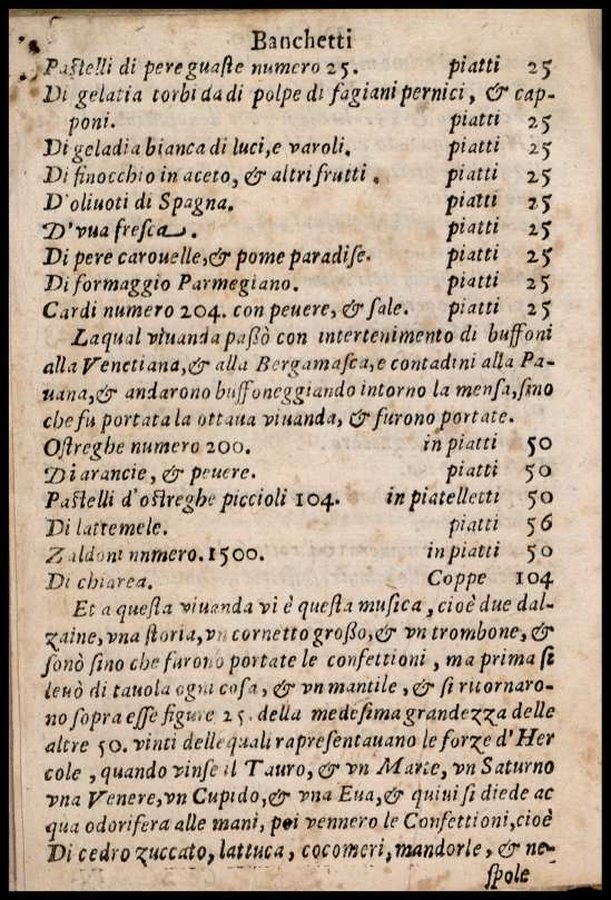 Banchetti
Pastelli di pere guaste numero 25. piatti 25
Di gelatia torbi da di polpe di fagiani pernici, & cap-
poni. piatti 25
Di geladia bianca di luci, e varoli. piatti 25
Di finocchio in aceto, & altri frutti. piatti 25
D'oliuoti di Spagna. piatti 25
D'vua fresca. piatti 25
Di pere carouelle, & pome paradise. piatti 25
Di formaggio Parmegiano. piatti 25
Cardi numero 204. con peuere, & sale. piatti 25
Laqual viuanda passò con intertenimento di buffoni
alla Venetiana, & alla Bergamasca, e contadini alla Pa-
uana, & andarono buffoneggiando intorno la mensa, sino
che fu portata la ottaua viuanda, & furono portate.
Ostreghe numero 200. in piatti 50
Di arancie, & peuere. piatti 50
Pastelli d'ostreghe piccioli 104. in piatelletti 50
Di lattemele. piatti 56
Zaldoni nnmero. 1500. in piatti 50
Di chiarea. Coppe 104
Et a questa viuanda vi è questa musica, cioè due dal-
zaine, vna storia, vn cornetto grosso, & vn trombone, &
sonò sino che furono portate le confettioni, ma prima si
leuò di tauola ogni cosa, & vn mantile, & si ritornaro-
no sopra esse figure 25. della medesima grandezza delle
altre 50. vinti delle quali rapresentauano le forze d'Her
cole, quando vinse il Tauro, & vn Marte, vn Saturno
vna Venere, vn Cupido, & vna Eua, & quiui si diede ac
qua odorifera alle mani, poi vennero le Confettioni, cioè
Di cedro zuccato, lattuca, cocomeri, mandorle, & ne-
spole